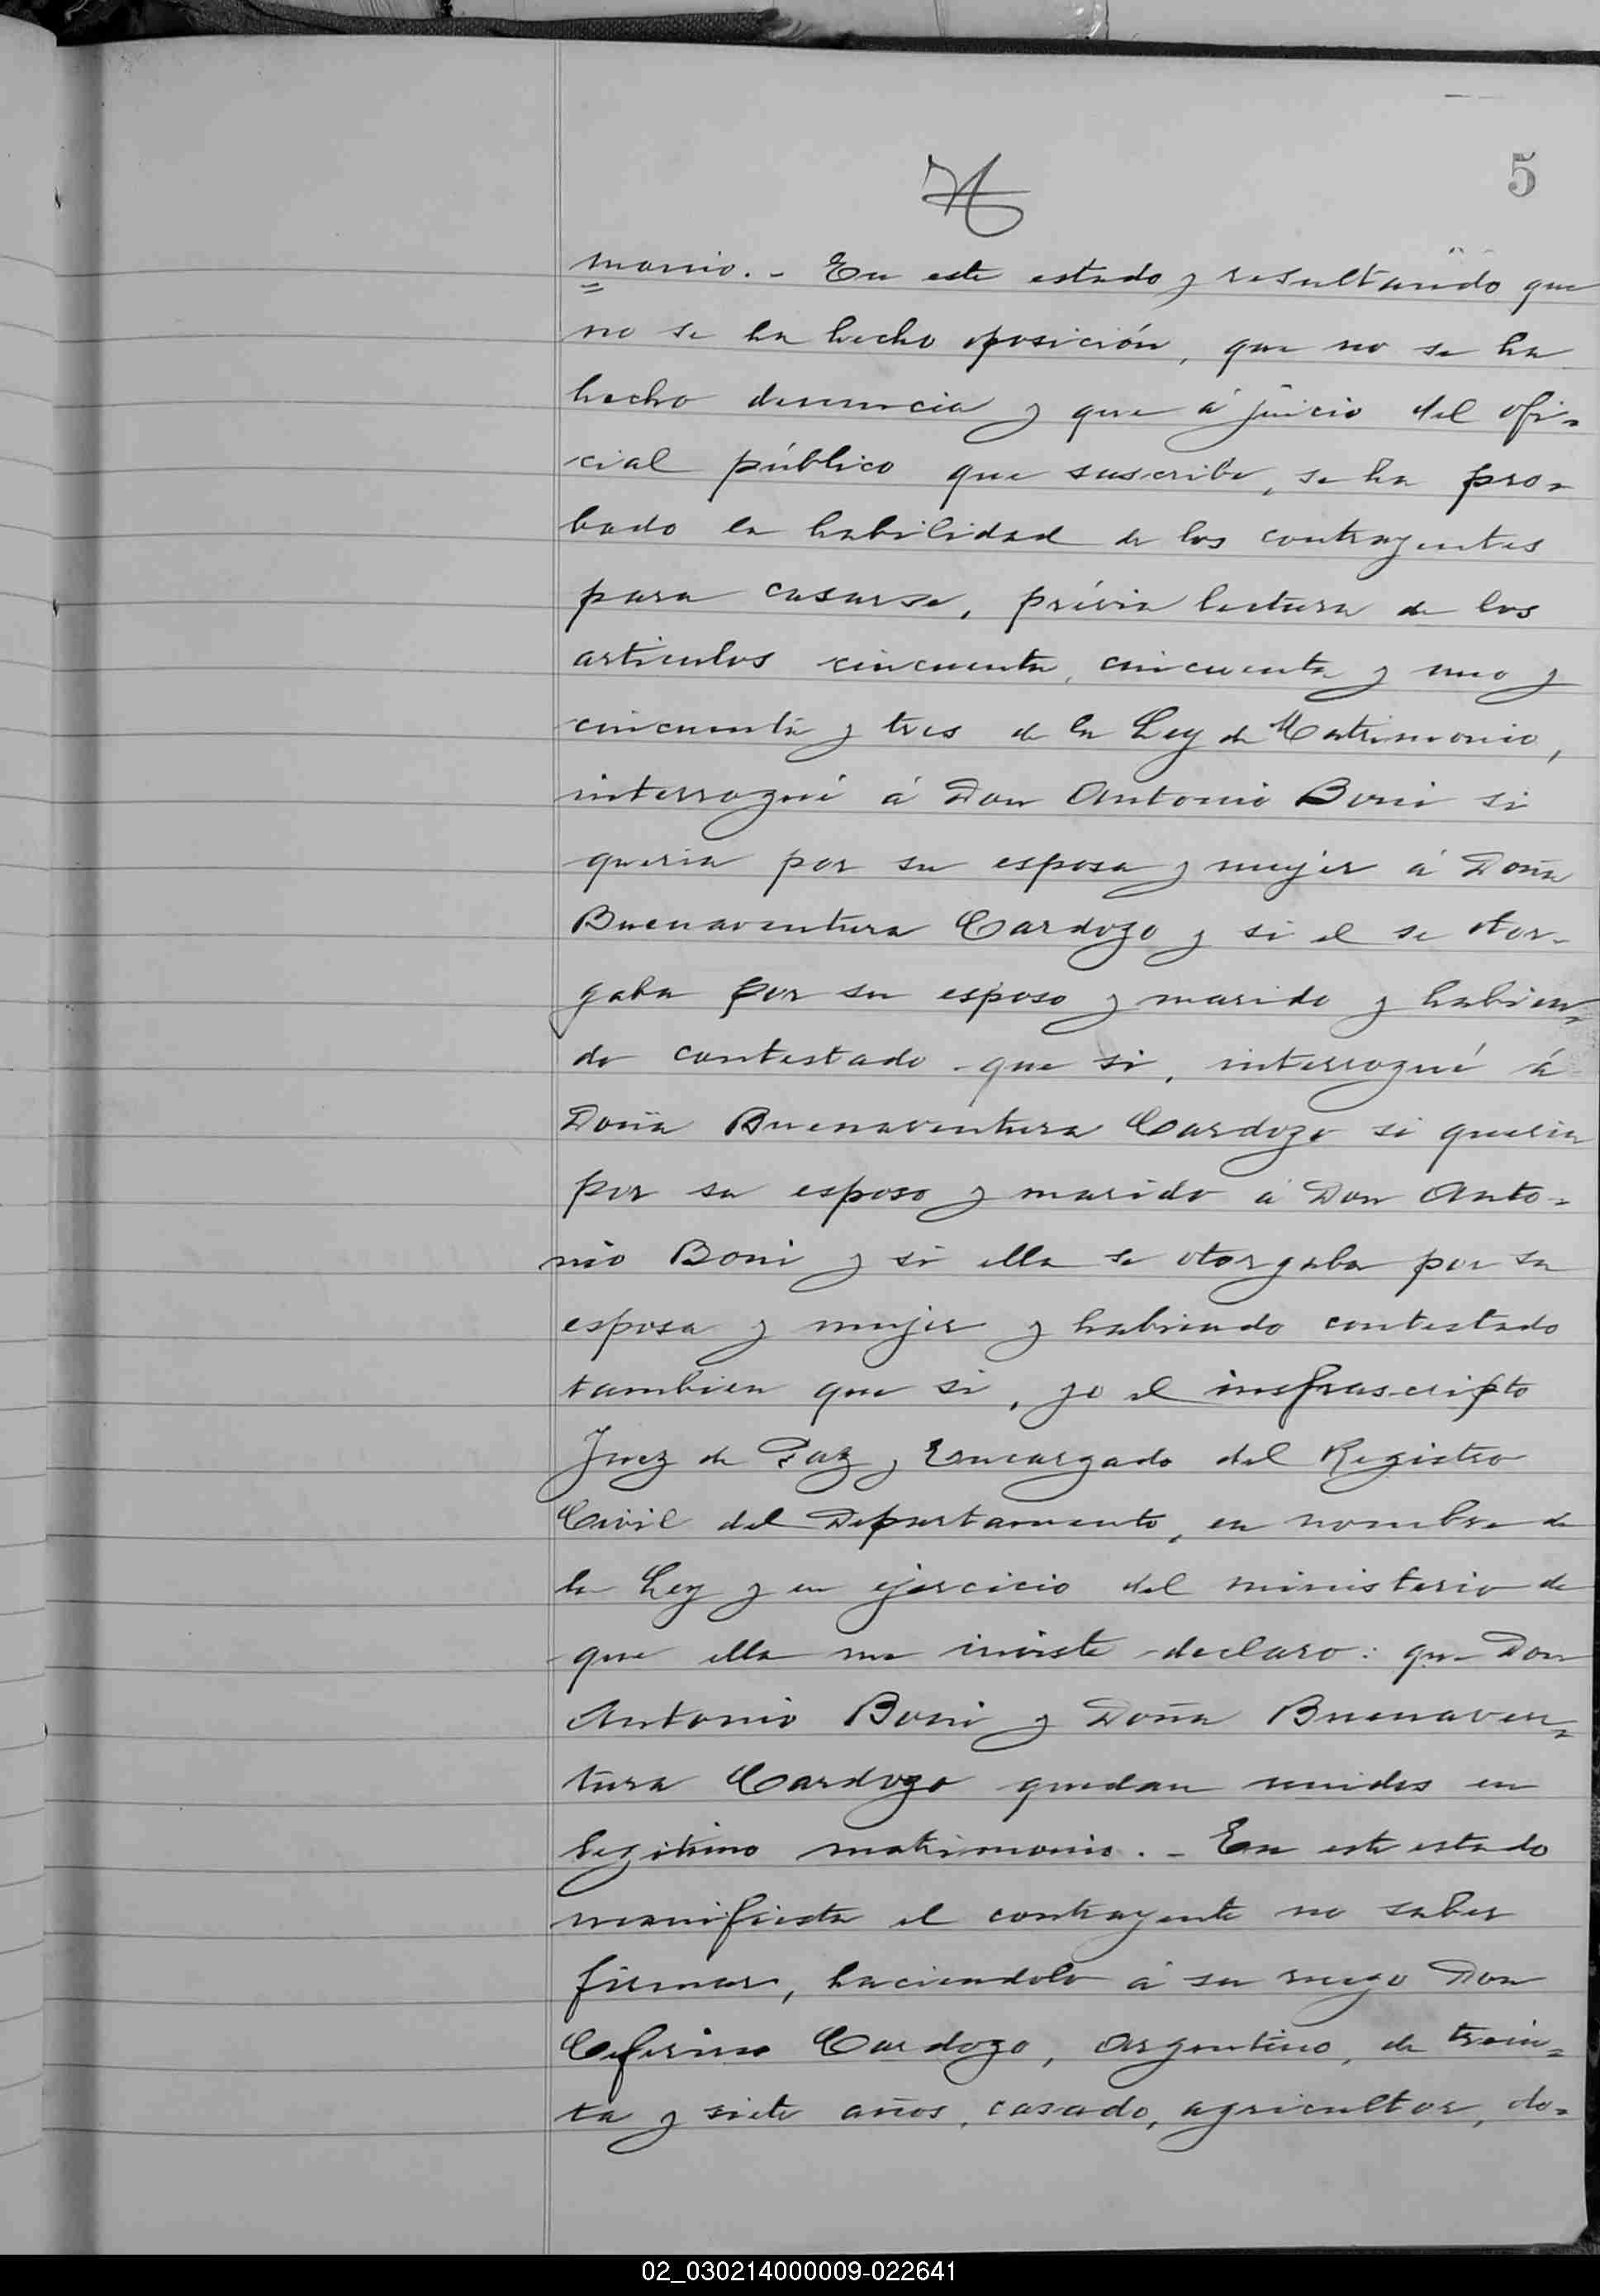 5
monio. - En este estado y resultando que
no se ha hecho oposición, que no se ha
hecho denuncia y que á juicio del ofi=
cial público que suscribe, se ha pro=
bado la habilidad de los contrayentes
para casarse, prévia lectura de los
articulos cincuenta, cincuenta y uno y
cincuenta y tres de la Ley de Matrimonio,
interrogué á Don Antonio Boni si
queria por su esposa y mujer á Doña
Buenaventura Cardozo y si el se otor-
gaba por su esposo y marido y habien=
do contestado que si, interrogué á
Doña Buenaventura Cardozo si queria
por su esposo y marido á Don Anto=
nio Boni y si ella se otorgaba por su
esposa y mujer y habiendo contestado
tambien que si, yo el insfrascripto
Juez de Paz y Encargado del Registro
Civil del Departamento, en nombre de
la Ley y en ejercicio del ministerio de
que ella me inviste declaro: que Don
Antonio Boni y Doña Buenaven=
tura Cardozo quedan unidos en
legitimo matrimonio. - En este estado
manifiesta el contrayente no saber
firmar, haciendolo á su ruego Don
Ceferino Cardozo, Argentino, de trein=
ta y siete años, casado, agricultor, do=
02_030214000009-022641